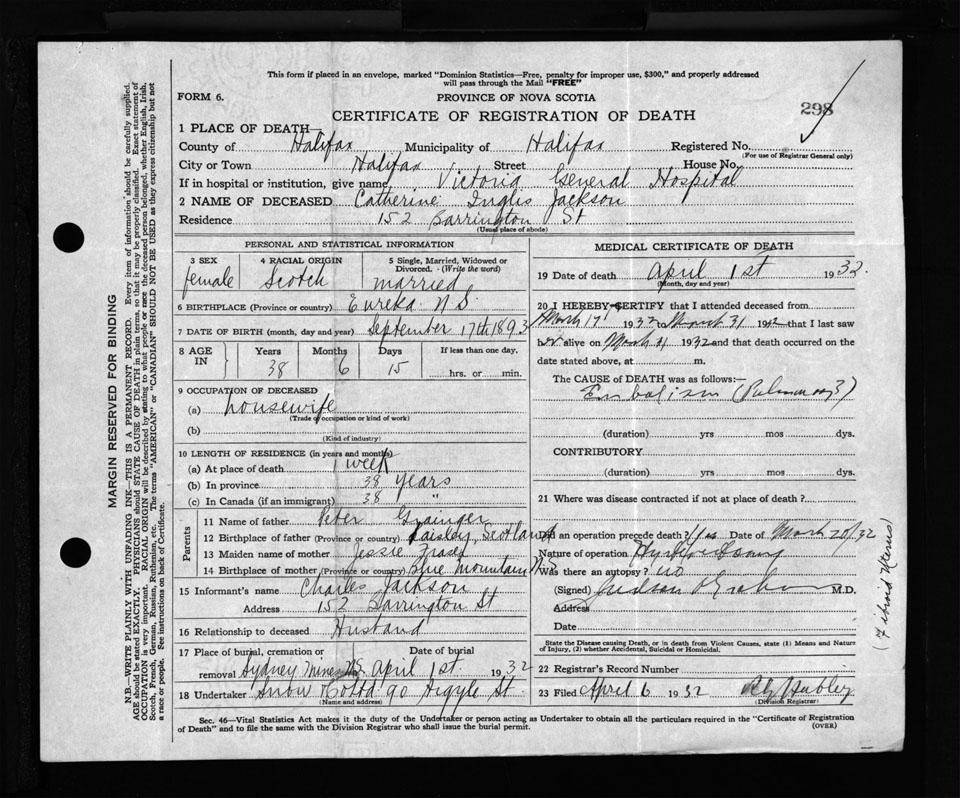 This form if placed in an envelope, marked "Dominion Statistics—Free, penalty for improper use, $300," and properly addressed
will pass through the Mail "FREE"
FORM 6.
PROVINCE OF NOVA SCOTIA
298
CERTIFICATE OF REGISTRATION OF DEATH
1 PLACE OF DEATH—
County of Halifax Municipality of Halifax Registered No.
(For use of Registrar General only)
City or Town Halifax Street House No.
If in hospital or institution, give name Victoria General Hospital
2 NAME OF DECEASED Catherine Inglis Jackson
Residence 152 Barrington St
(Usual place of abode)
PERSONAL AND STATISTICAL INFORMATION
3 SEX 4 RACIAL ORIGIN 5 Single, Married, Widowed or Divorced. (Write the word)
female Scotch married
6 BIRTHPLACE (Province or country) Eureka N.S.
7 DATE OF BIRTH (month, day and year) September 17th 1893
8 AGE IN Years Months Days If less than one day.
38 6 15 hrs. or min.
9 OCCUPATION OF DECEASED
(a) housewife
(Trade occupation or kind of work)
(b)
(Kind of industry)
10 LENGTH OF RESIDENCE (in years and months)
(a) At place of death 1 week
(b) In province 38 years
(c) In Canada (if an immigrant) 38 "
Parents
11 Name of father Peter Grainger
12 Birthplace of father (Province or country) Paisley, Scotland
13 Maiden name of mother Jessie Fraser
14 Birthplace of mother (Province or country) Blue Mountain N.S
15 Informant's name Charles Jackson
Address 152 Barrington St
16 Relationship to deceased Husband
17 Place of burial, cremation or Date of burial
removal Sydney Mines NS April 1st. 1932
18 Undertaker Snow & Co Ltd 90 Argyle St.
(Name and address)
MEDICAL CERTIFICATE OF DEATH
19 Date of death April 1st 1932.
(Month, day and year)
20 I HEREBY CERTIFY that I attended deceased from
March 17 1932 March 31 1932 that I last saw
her alive on March 31 1932 and that death occurred on the
date stated above, at m.
The CAUSE OF DEATH was as follows:—
Embolism (Pulmonary)
(duration) yrs mos dys.
CONTRIBUTORY
(duration) yrs mos dys.
21 Where was disease contracted if not at place of death?
Did an operation precede death? Yes Date of March 20/32
Nature of operation
Was there an autopsy? no
(Signed) Judson Graham M.D.
Address
Date
(Fibroid Uterus)
State the Disease causing Death, or in death from Violent Causes, state (1) Means and Nature
of Injury, (2) whether Accidental, Suicidal or Homicidal.
22 Registrar's Record Number
23 Filed April 6 1932
(Division Registrar)
Sec. 46—Vital Statistics Act makes it the duty of the Undertaker or person acting as Undertaker to obtain all the particulars required in the "Certificate of Registration
of Death" and to file the same with the Division Registrar who shall issue the burial permit.
(OVER)
MARGIN RESERVED FOR BINDING
N.B.—WRITE PLAINLY WITH UNFADING INK—THIS IS A PERMANENT RECORD. Every item of information should be carefully supplied.
AGE should be stated EXACTLY. PHYSICIANS should STATE CAUSE OF DEATH in plain terms, so that it may be properly classified. Exact statement of
OCCUPATION is very important. RACIAL ORIGIN will be described by stating to what people or race the deceased person belonged, whether English, Irish,
Scotch, French, German, Russian, Ruthenian, etc. The terms "AMERICAN" or "CANADIAN" SHOULD NOT BE USED as they express citizenship but not
a race or people. See instructions on back of Certificate.